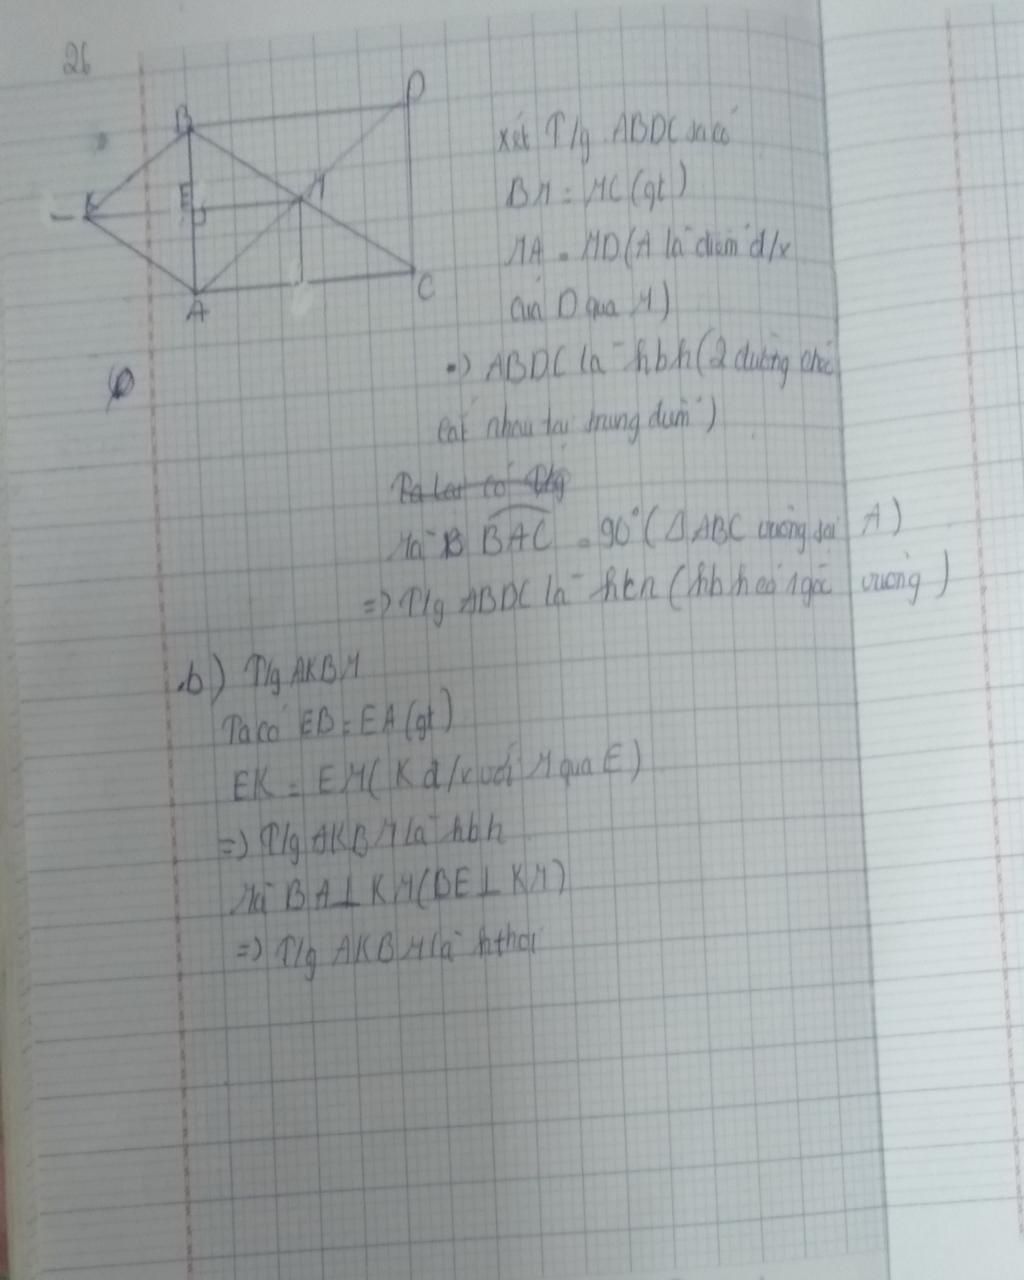 26
B
D
K
E
M
A
C
xét T/g ABDC ta có
BM = MC (gt)
MA = MD (A là điểm đ/x
của D qua M)
=) ABDC là hbh (2 đường chéo
cắt nhau tại trung điểm)
Ta lại có T/g
Mà B BAC = 90° (Δ ABC vuông tại A)
=) T/g ABDC là hcn (hbh có 1 góc vuông)
b) T/g AKBM
Ta có EB = EA (gt)
EK = EM (K đ/x với M qua E)
=) T/g AKBM là hbh
Mà BA ⊥ KM (BE ⊥ KM)
=) T/g AKBM là hthoi